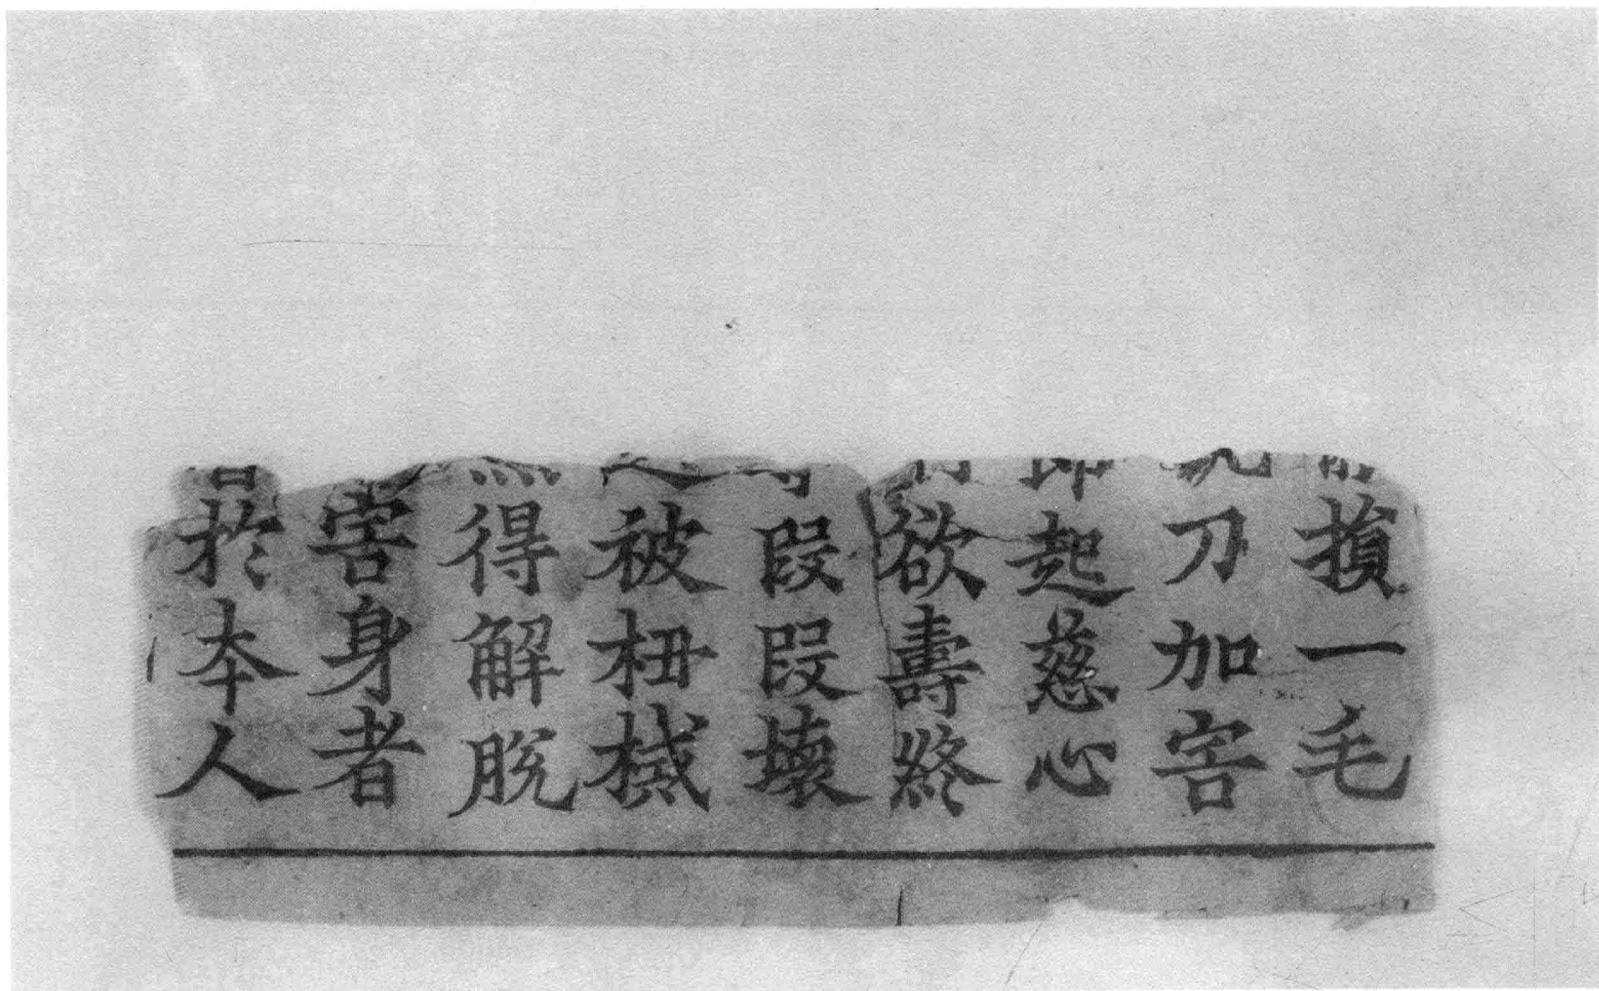 損一毛
刀加害
起慈心
欲壽終
段段壞
被杻械
得解脫
害身者
於本人